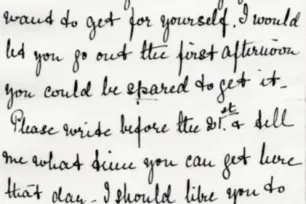 want to get for yourself. I would
let you go out the first afternoon
you could be spared to get it.
Please write before the 21st & tell
me what time you can get here
that day. I should like you to